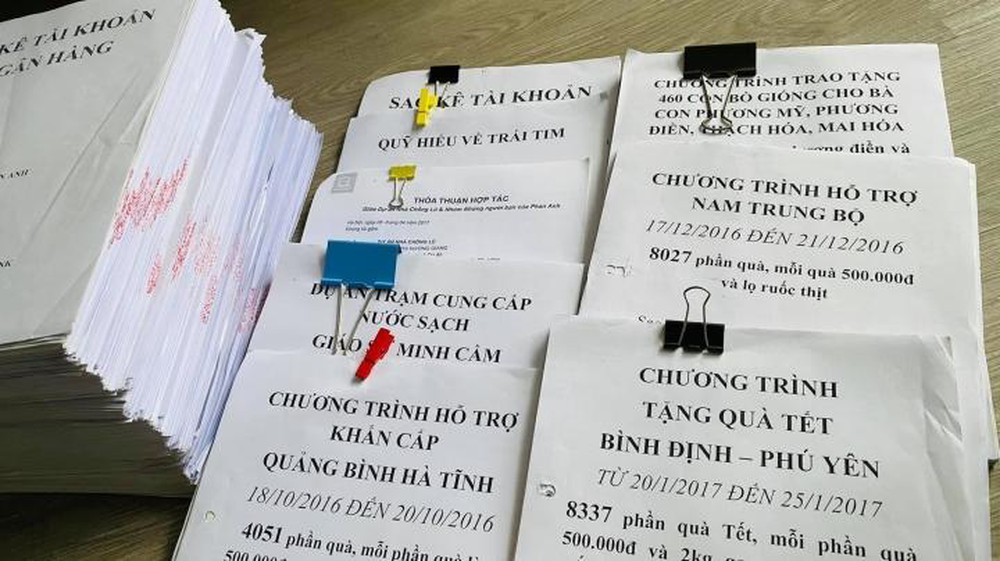 KÊ TÀI KHOẢN
GÂN HÀNG
ANH
NK
SAO KÊ TÀI KHOẢN
QUỸ HIỂU VỀ TRÁI TIM
THỎA THUẬN HỢP TÁC
DỰ ÁN TRẠM CUNG CẤP
NƯỚC SẠCH
GIÁO SỨ MINH CẦM
CHƯƠNG TRÌNH HỖ TRỢ
KHẨN CẤP
QUẢNG BÌNH HÀ TĨNH
18/10/2016 ĐẾN 20/10/2016
4051 phần quà, mỗi phần quà
500.000đ
CHƯƠNG TRÌNH TRAO TẶNG
460 CON BÒ GIỐNG CHO BÀ
CON PHƯƠNG MỸ, PHƯƠNG
ĐIỀN, THẠCH HÓA, MAI HÓA
điền và
CHƯƠNG TRÌNH HỖ TRỢ
NAM TRUNG BỘ
17/12/2016 ĐẾN 21/12/2016
8027 phần quà, mỗi quà 500.000đ
và lọ ruốc thịt
CHƯƠNG TRÌNH
TẶNG QUÀ TẾT
BÌNH ĐỊNH – PHÚ YÊN
TỪ 20/1/2017 ĐẾN 25/1/2017
8337 phần quà Tết, mỗi phần quà
500.000đ và 2kg